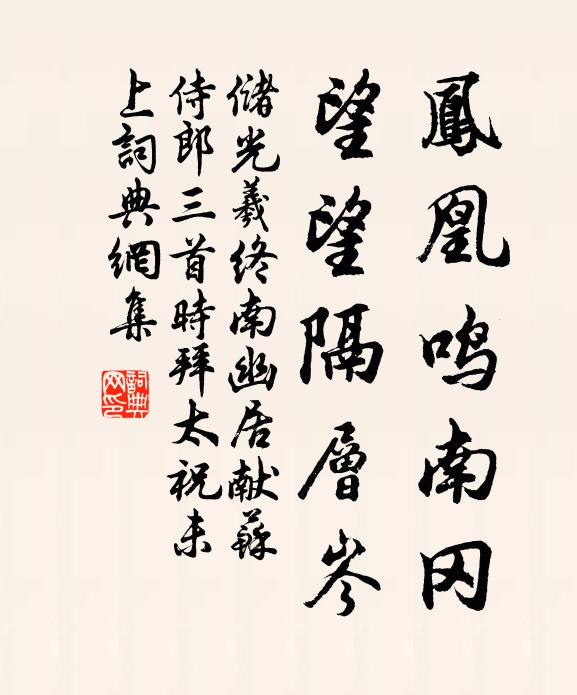 鳳凰鸣南冈
望望隔層岑
儲光羲终南幽居献蘇
侍郎三首時拜太祝未
上詞典網集
詞典网印